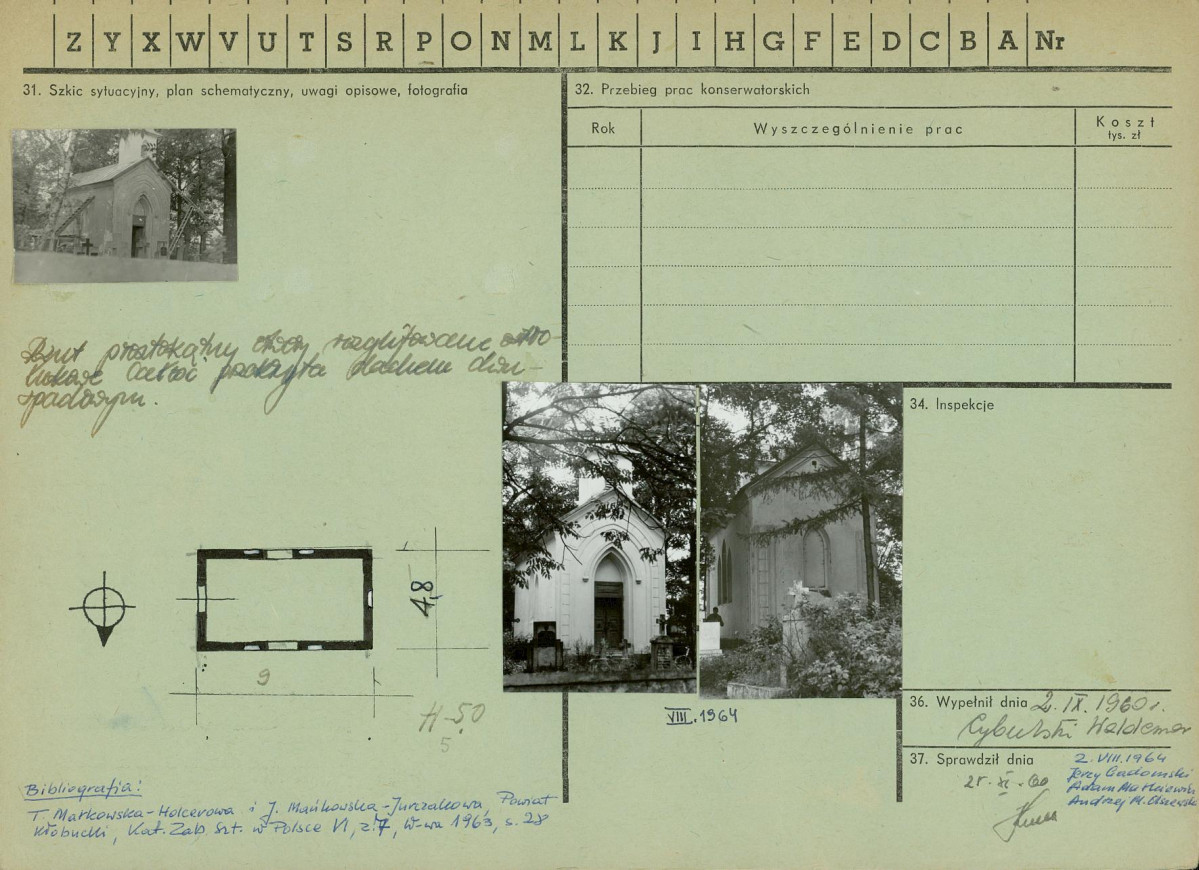 Z Y X W V U T S R P O N M L K J I H G F E D C B A Nr
31. Szkic sytuacyjny, plan schematyczny, uwagi opisowe, fotografia
32. Przebieg prac konserwatorskich
Rok
Wyszczególnienie prac
Koszt
tys. zł
Rzut prostokątny otwory rozglifowane ostro-
łukowe Całość pokryta dachem dwu-
spadowym.
4,8
9
H-5,0
5
VIII.1964
34. Inspekcje
36. Wypełnił dnia 2.IX.1960 r.
Cybulski Waldemar
37. Sprawdził dnia
25.XI.60
2.VIII.1964
Jerzy Gadomski
Adam Małkiewicz
Andrzej M. Olszewski
Bibliografia:
T. Małkowska-Holcerowa i J. Mańkowska-Jurczakowa, Powiat
Kłobucki, Kat. Zab. Szt. w Polsce VI, z.7, W-wa 1963, s. 28